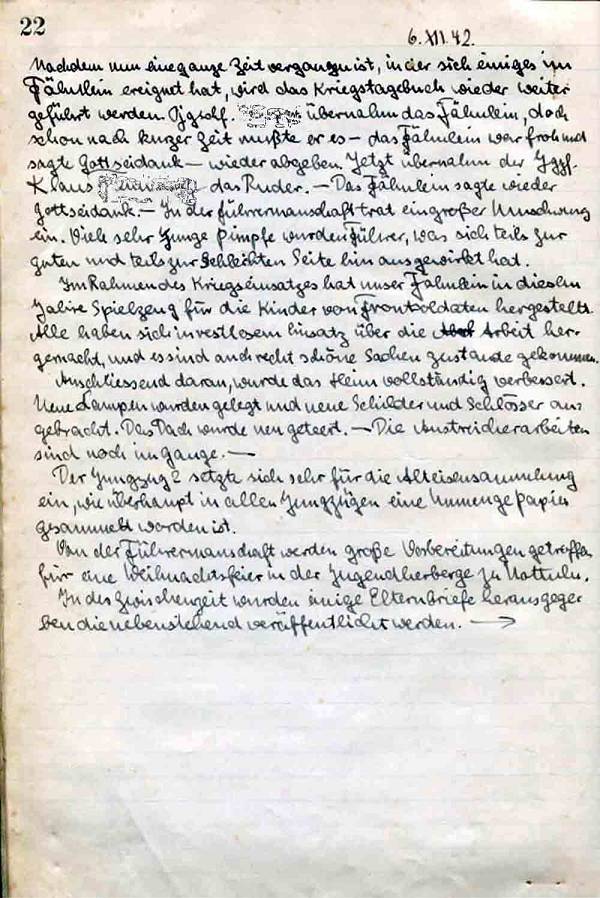 22
6. XII. 42.
Nachdem nun eine ganze Zeit vergangen ist, in der sich einiges im
Fähnlein ereignet hat, wird das Kriegstagebuch wieder weiter
geführt werden. übernahm das Fähnlein, doch
schon nach kurzer Zeit mußte er es – das Fähnlein war froh und
sagte Gottseidank – wieder abgeben. Jetzt übernahm der
Klaus das Ruder. – Das Fähnlein sagte wieder
Gottseidank. – In der Führermannschaft trat ein großer Umschwung
ein. Viele sehr junge Pimpfe wurden Führer, was sich teils zur
guten und teils zur Schlechten Seite hin ausgewirkt hat.
Im Rahmen des Kriegseinsatzes hat unser Fähnlein in diesem
Jahre Spielzeug für die Kinder von Frontsoldaten hergestellt.
Alle haben sich in restlosem Einsatz über die Arbeit her-
gemacht, und es sind auch recht schöne Sachen zustande gekommen.
Anschliessend daran, wurde das Heim vollständig verbessert.
Neue Lampen wurden gelegt und neue Schilder und Schlösser an-
gebracht. Das Dach wurde neu geteert. – Die Anstreicherarbeiten
sind noch im gange. –
Der Jungzug 2 setzte sich sehr für die Alteisensammlung
ein, wie überhaupt in allen Jungzügen eine Unmenge Papier
gesammelt worden ist.
Von der Führermannschaft werden große Vorbereitungen getroffen
für eine Weihnachtsfeier in der Jugendherberge zu Nottuln.
In der Zwischenzeit wurden einige Elternbriefe herausgege
ben die nebenstehend veröffentlicht werden. →